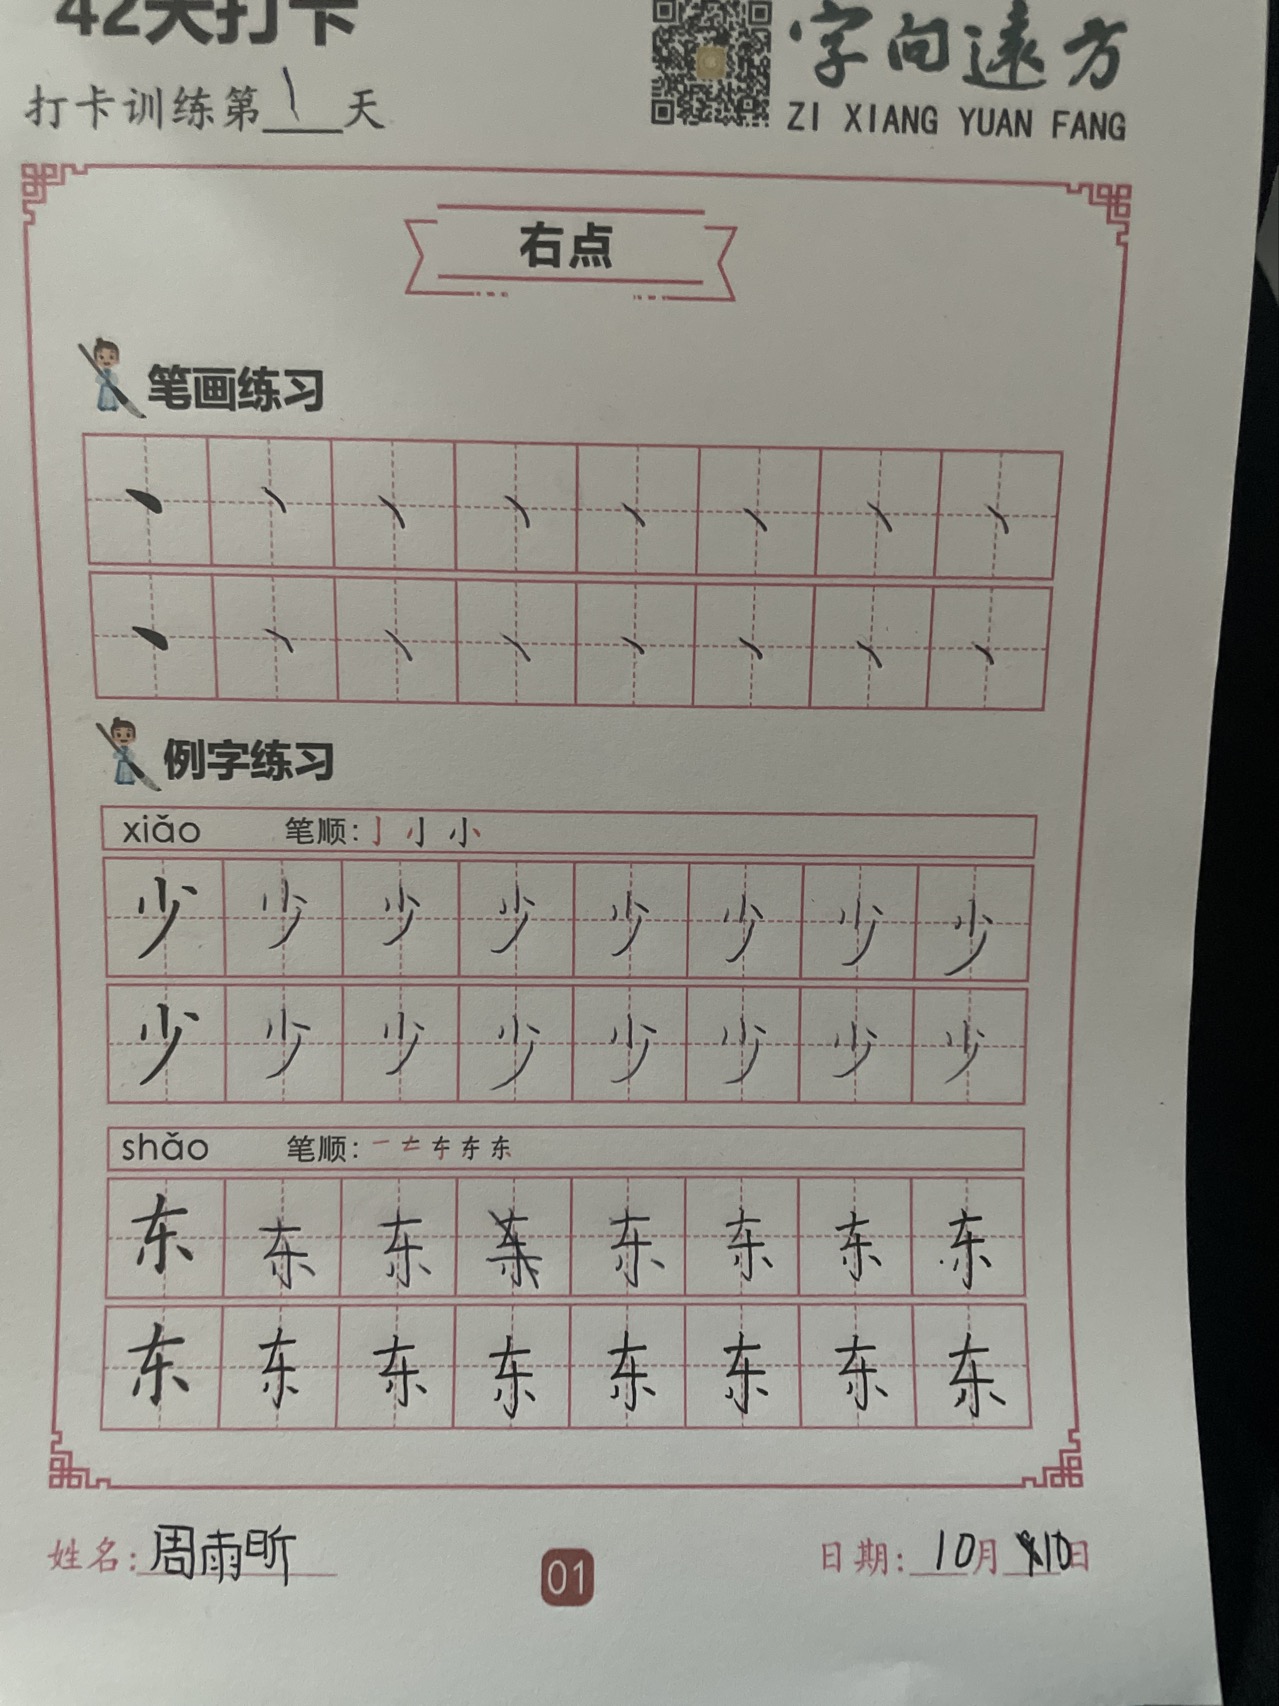 42天打卡
字向遠方
打卡训练第1天
ZI XIANG YUAN FANG
右点
笔画练习
丶 丶 丶 丶 丶 丶 丶 丶
丶 丶 丶 丶 丶 丶 丶 丶
例字练习
xiǎo 笔顺: 亅 小 小
少 少 少 少 少 少 少 少
少 少 少 少 少 少 少 少
shǎo 笔顺: 一 东
东 东 东 东 东 东 东
东 东 东 东 东 东 东 东
姓名: 周雨昕
01
日期: 10月 10日